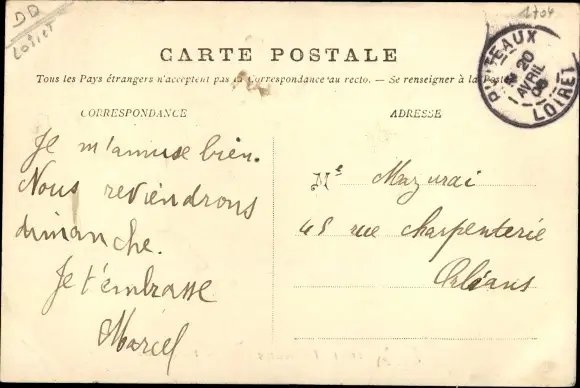 DD
Loiret
1704
CARTE POSTALE
Tous les Pays étrangers n'acceptent pas la Correspondance au recto. — Se renseigner à la Poste
PUISEAUX
20
AVRIL
08
LOIRET
CORRESPONDANCE
Je m'amuse bien.
Nous reviendrons
dimanche.
Je t'embrasse
Marcel
ADRESSE
Mazurai
45 rue charpenterie
Orléans